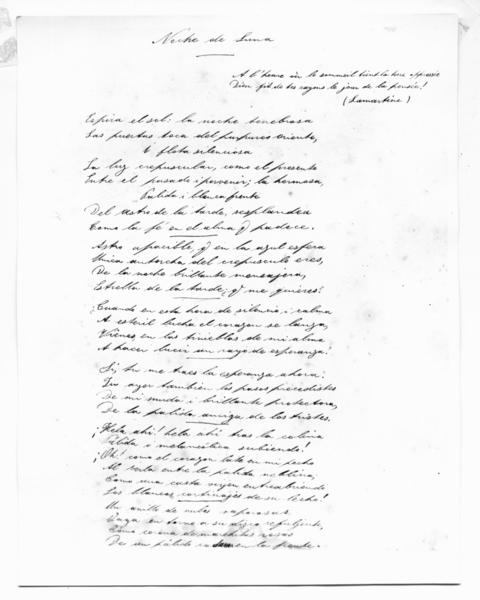 Noche de Luna
A l'heure où le sommeil tient la terre oppressée
Dieu fit de tes rayons le jour de la pensée!
(Lamartine)
Espira el sol: la noche tenebrosa
Las puertas toca del purpureo oriente,
I flota silenciosa
La luz crepuscular, como el presente
Entre el pasado i porvenir; la hermosa,
Palida i blanca frente
Del astro de la tarde, resplandece
Como la fé en el alma q' padece.
Astro apacible, q' en la azul esfera
Unica antorcha del crepusculo eres,
De la noche brillante mensajera,
Estrella de la tarde; q' me quieres?
¿Cuando en esta hora de silencio, i calma
A esteril lucha el corazon se lanza,
Vienes en las tinieblas de mi alma
A hacer lucir un rayo de esperanza?
Si, tu me traes la esperanza ahora:
Tu ayer tambien los pasos precediste
De mi muda i brillante protectora,
De la palida amiga de los tristes.
¡Hela ahi! hela ahi tras la colina
Palida i melancolica subiendo!
¡Oh! como el corazon late en mi pecho
Al verla entre la palida neblina,
Como una casta virjen entreabriendo
Los blancos cortinajes de su lecho!
Un anillo de nubes vaporosas
Vaga en torno a su disco refuljente,
Como corona de marchitas rosas
De un pálido en la frente.